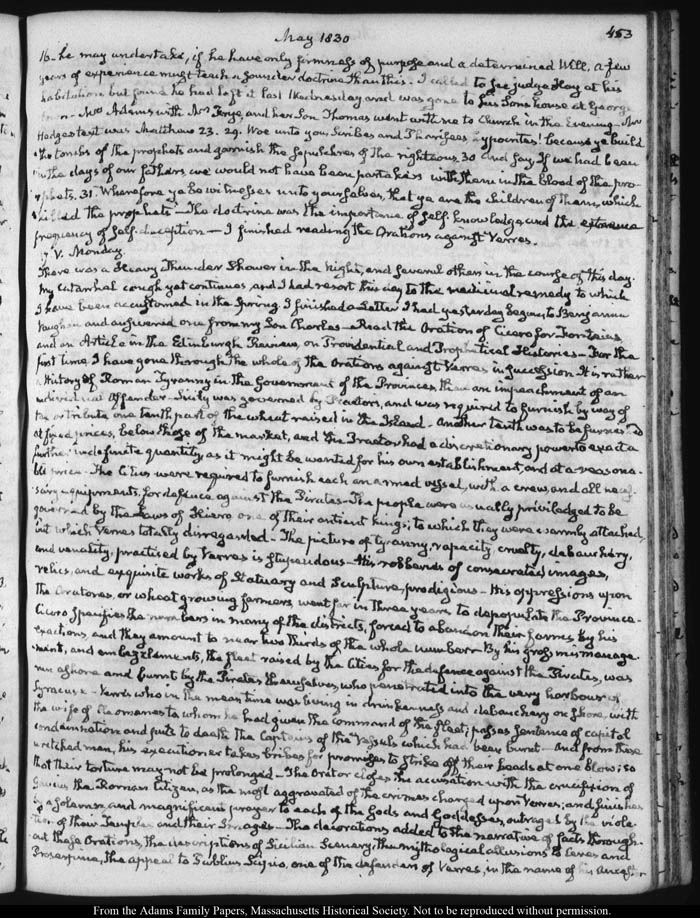 May 1830
453
16. he may undertake, if he have only firmness of purpose and a determined Will, a few
years of experience must teach a sounder doctrine than this. I called to see judge Hay at his
habitation but found he had left it last Wednesday and was gone to his Sons house at George
town. Mrs Adams with Mrs Frye, and her Son Thomas went with me to Church in the Evening. Mr
Hodges text was Matthew 23. 29. Woe unto you Scribes and Pharisees hypocrites! because ye build
the tombs of the prophets and garnish the sepulchres of the righteous. 30 and say, If we had been
in the days of our fathers, we would not have been partakers with them in the blood of the pro-
phets. 31. Wherefore ye be witnesses unto yourselves, that ye are the children of them, which
killed the prophets — The doctrine was the importance of self knowledge and the extreme
frequency of self-deception — I finished reading the Orations against Verres.
17. V. Monday.
There was a Heavy Thunder Shower in the Night, and several others in the course of this day.
My catarrhal cough yet continues, and I had resort this day to the medicinal remedy to which
I have been accustomed in the Spring. I finished a Letter I had yesterday begun to Benjamin
Vaughan and answered one from my Son Charles — Read the Oration of Cicero for Fonteius,
and an Article in the Edinburgh Review, on Providential and Prophetical Histories — For the
first time I have gone through the whole of the Orations against Verres in succession. It is rather
a History of Roman Tyranny in the Government of the Provinces, than an impeachment of an
individual Offender. Sicily was governed by Praetors, and was required to furnish by way of
tax or tribute one tenth part of the wheat raised in the Island. Another tenth was to be furnished
at fixed prices, below those of the market, and the Praetor had a discretionary power to exact a
further indefinite quantity as it might be wanted for his own establishment, and at a reasona-
ble price. The Cities were required to furnish each an armed vessel, with a crew, and all neces-
sary equipments, for defence against the Pirates. The people were usually priviledged to be
governed by the Laws of Hiero one of their antient kings; to which they were warmly attached,
but which Verres totally disregarded. The picture of tyranny, rapacity, cruelty, debauchery,
and venality, practised by Verres is stupendous — His robberies of consecrated images,
relics, and exquisite works of Statuary and Sculpture, prodigious — His oppressions upon
the Aratores, or wheat growing farmers, went far in three years to depopulate the Province.
Cicero specifies the numbers in many of the districts, forced to abandon their farms by his
exactions, and they amount to near two thirds of the whole number. By his gross mismanage-
ment, and embezzlements, the fleet raised by the Cities for the defence against the Pirates, was
run ashore and burnt by the Pirates themselves, who penetrated into the very harbour of
Syracuse. Verres who in the mean time was living in drunkenness and debauchery on shore, with
the wife of Cleomenes to whom he had given the command of the fleet, passes sentence of capital
condemnation and puts to death the Captains of the Vessels which had been burnt — And from these
wretched men, his executioner takes bribes for promises to strike off their heads at one blow; so
that their torture may not be prolonged — The Orator closes the accusation with the crucifixion of
Gavius the Roman Citizen, as the most aggravated of the crimes charged upon Verres; and finishes
by a solemn and magnificent prayer to each of the Gods and Goddesses, outraged by the viola-
tion of their Temples and their Images — The decorations added to the narrative of facts through-
out these Orations, the descriptions of Sicilian Scenery, the mythological allusions to Ceres and
Proserpine, the appeal to Publius Scipio, one of the defenders of Verres, in the name of his Ancestor
From the Adams Family Papers, Massachusetts Historical Society. Not to be reproduced without permission.